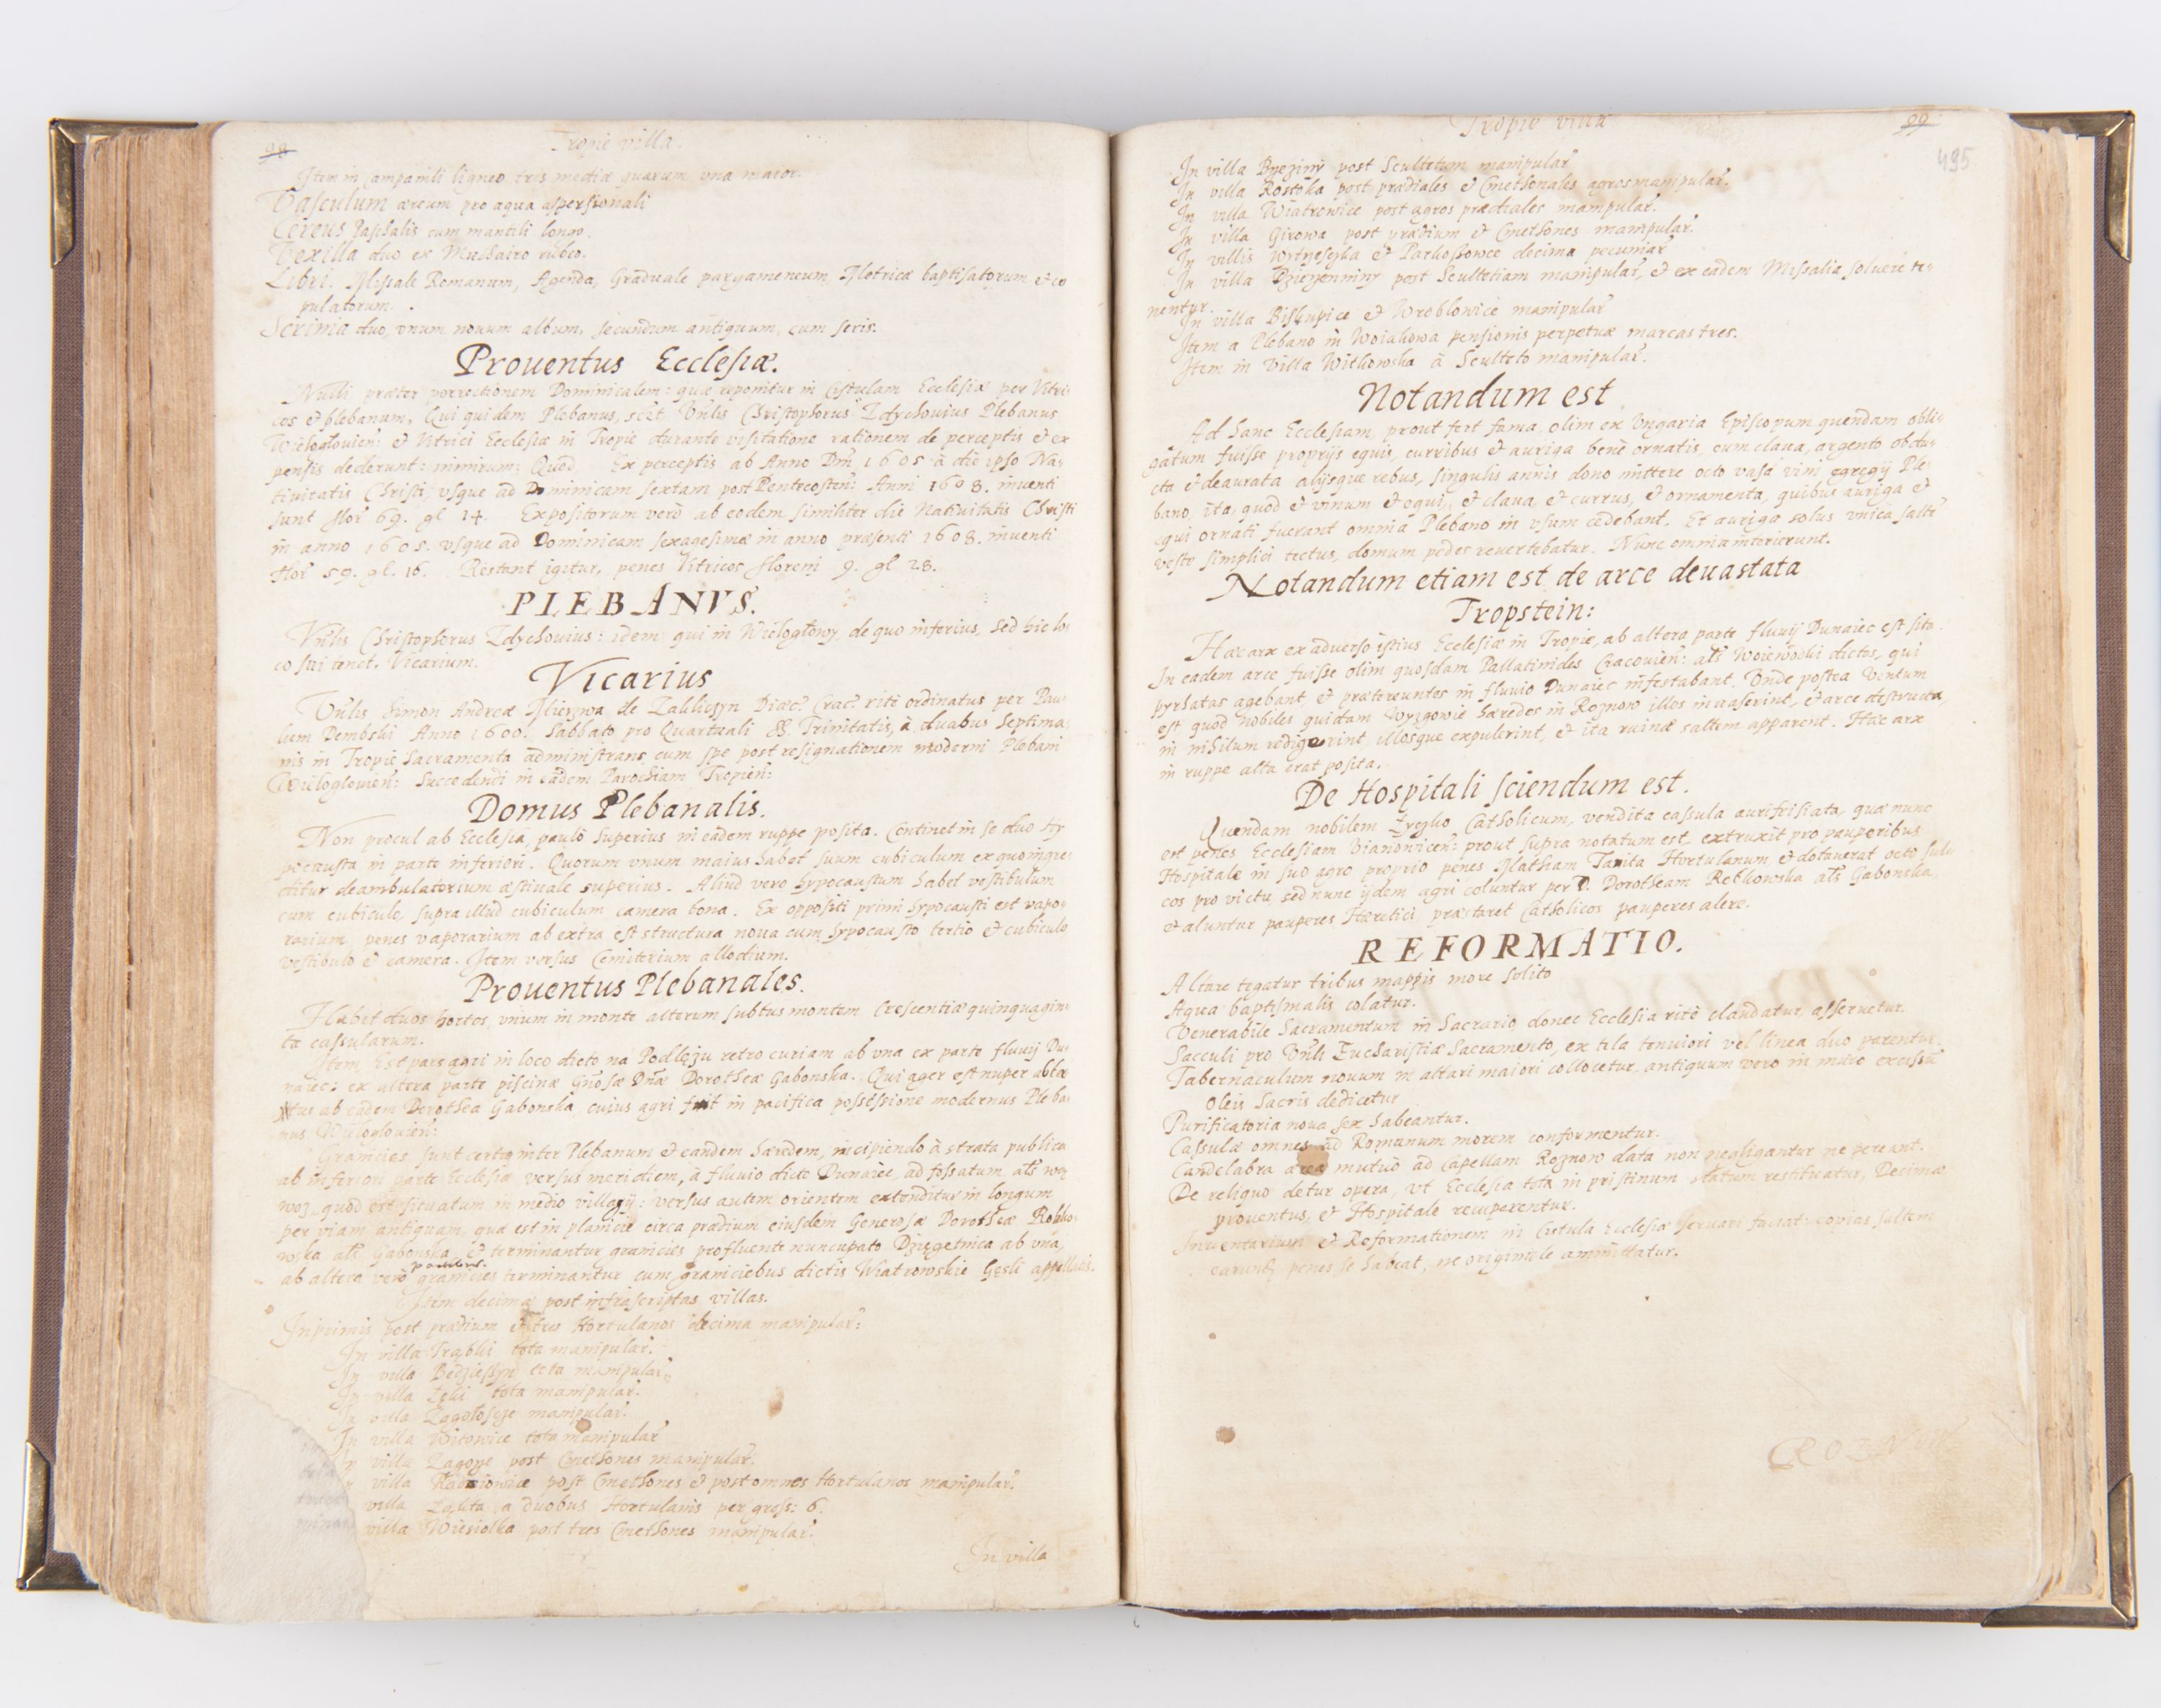 98
Tropie villa.
Item in Campanili ligneo tres mediæ quarum vna maior.
Vasculum æreum pro aqua aspersionali
Cereus Paschalis cum mantili longo.
Vexilla duo ex Muchairo rubeo.
Libri. Missale Romanum, Agenda, Graduale pargameneum, Metricæ baptisatorum et co
pulatorum.
Scrinia duo, vnum nouum album, secundum antiquum, cum seris.
Prouentus Ecclesiæ.
Nulli præter porrectionem Dominicalem: quæ reponitur in Cistulam Ecclesiæ per Vitri
cos et plebanum, Qui quidem Plebanus, sczt Vnlis Christophorus Zdychouius Plebanus
Wielogłouien: et Vitrici Ecclesiæ in Tropie durante visitatione rationem de perceptis et ex
pensis dederunt: nimirum: Quod Ex perceptis ab Anno Dni 1605 à die ipso Na
tiuitatis Christi, vsque ad Dominicam sextam post Pentecosten: Anni 1608. inuenti
sunt flor 69. gl 14. Expositorum verò ab eodem similiter die Natiuitatis Christi
in anno 1605. vsque ad Dominicam sexagesimæ in anno præsenti 1608. inuenti
flor 59. gl. 16. Restant igitur, penes Vitricos floreni 9. gl 28.
PLEBANVS.
Vnlis Christophorus Zdychouius: idem qui in Wielogłowy, de quo inferius, Sed hic lo
co sui tenet. Vicarium.
Vicarius
Vnlis Simon Andreæ de Diæc. Crac. ritè ordinatus per Pau
lum Dembski Anno 1600. Sabbato pro Quartuali SS. Trinitatis, à duabus Septima
nis in Tropie Sacramenta administrans cum spe post resignationem moderni Plebani
Wielogłouien: Succedendi in eadem Parochiam Tropien:
Domus Plebanalis.
Non procul ab Ecclesia, paulò superius in eadem ruppe posita. Continet in se duo hy
pocausta in parte inferiori. Quorum vnum maius habet suum cubiculum ex quo ingre
ditur deambulatorium æstiuale superius. Aliud vero hypocaustum habet vestibulum
cum cubiculo, supra illud cubiculum camera bona. Ex oppositi primi hypocausti est vapo
rarium, penes vaporarium ab extra est structura noua cum hypocausto tertio et cubiculo
vestibulo et camera. Item versus Cemiterium allodium.
Prouentus Plebanales.
Habet duos hortos, vnum in monte alterum subtus montem Crescentiæ quinquagin
ta cassularum.
Item, Est pars agri in loco dicto na Podlężu retro curiam ab vna ex parte fluuij Du
naiec: ex altera parte piscinæ Gnosæ Dnæ Dorotheæ Gabonska. Qui ager est nuper abla
tus ab eadem Dorothea Gabonska, cuius agri fuit in pacifica possessione modernus Pleba
nus Wielogłouien:
Granicies sunt certæ inter Plebanum et eandem hæredem, incipiendo à strata publica
ab inferiori parte Ecclesiæ versus meridiem, à fluuio dicto Dunaiec, ad fossatum als wą
woz, quod est situatum in medio villagij: versus autem orientem extenditur in longum
per viam antiquam, qua est in planicie circa prædium eiusdem Generosæ Dorotheæ Robko
wska als Gabonska, et terminantur granicies profluente nuncupato Dzięgetnica ab vna,
ab altera verò partibus. granicies terminantur cum graniciebus dictis Wiatrowskie Gęsli appellatis.
Item decimæ post infrascriptas villas.
Inprimis post prædium et tres Hortulanos decima manipular:
In villa Trąbki tota manipular.
In villa Bedziessyn tota manipular.
In villa Łęki tota manipular.
In villa manipular.
In villa Witowice tota manipular
villa post Cmethones manipular.
villa post Cmethones et post omnes Hortulanos manipular.
villa a duobus Hortulanis per gross: 6.
villa Wiesiolka post tres Cmethones manipular.
In villa
Tropie villa
99
495
In villa Brzeziny post Scultetum manipular
In villa Rostoka post prædiales et Cmethonales agros manipular.
In villa Wiatrowice post agros prædiales manipular.
In villa Girowa post prædium et Cmethones manipular.
In villis Wytrzesczka et Parkossowce decima pecuniar
In villa post Scultetiam manipular, et ex eadem Missalia soluere te
nentur.
In villa Biskupice et Wroblowice manipular
Item a Plebano in Woiakowa pensionis perpetuæ marcas tres.
Item in Villa Witkowska à Sculteto manipular.
Notandum est
Ad hanc Ecclesiam, prout fert fama, olim ex Vngaria Episcopum quendam obli
gatum fuisse proprijs equis, curribus et auriga benè ornatis, cum claua, argento obdu
cta et deaurata alijsque rebus, singulis annis dono mittere octo vasa vini egregij Ple
bano, ita, quod et vinum et equi, et claua, et currus, et ornamenta, quibus auriga et
equi ornati fuerant omnia Plebano in vsum cedebant. Et auriga solus vnica salte
veste simplici tectus, domum pedes reuertebatur. Nunc omnia interierunt.
Notandum etiam est de arce deuastata
Tropstein:
Hæc arx ex aduerso istius Ecclesiæ in Tropie, ab altera parte fluuij Dunaiec est sita.
In eadem arce fuisse olim quosdam Pallatinides Cracouien: als Woiewodki dictos, qui
pyrhatas agebant, et prætereuntes in fluuio Dunaiec infestabant. Vnde postea Ventum
est quod Nobiles quidam Wyzgowie hæredes in Roznow illos inuaserint, et arce destructa
in nihilum redigerint, illosque expulerint, et ita ruinæ saltem apparent. Hæc arx
in ruppe alta erat posita.
De Hospitali sciendum est.
Quendam nobilem Catholicum, vendita cassula aurifrisiata, quæ nunc
est penes Ecclesiam Vianonicen: prout supra notatum est, extruxit pro pauperibus
Hospitale in suo agro proprio penes Hortulanum, et dotauerat octo sul
cos pro victu, sed nunc ijdem agri coluntur per D. Dorotheam Rebkowska als Gabonska,
et aluntur pauperes Hæretici, præstaret Catholicos pauperes alere.
REFORMATIO.
Altare tegatur tribus mappis more solito
Aqua baptismalis colatur.
Venerabile Sacramentum in Sacrario, donec Ecclesia ritè claudatur, asseruetur.
Sacculi pro Vnli Eucharistiæ Sacramento, ex tela tenuiori vel linea duo parentur.
Tabernaculum nouum in altari maiori collocetur, antiquum vero in muro excissu
Oleis Sacris dedicetur
Purificatoria noua sex habeantur.
Cassulæ omnes ad Romanum morem conformentur.
Candelabra ærea mutuò ad Capellam Roznow data non negligantur ne pereant.
De reliquo detur opera, vt Ecclesia tota in pristinum statum restituatur, Decimæ
prouentus, et Hospitale recuperentur.
Inuentarium et Reformationem in Cistula Ecclesiæ seruari faciat: copias saltem
earund penes se habeat, ne originale amittatur.